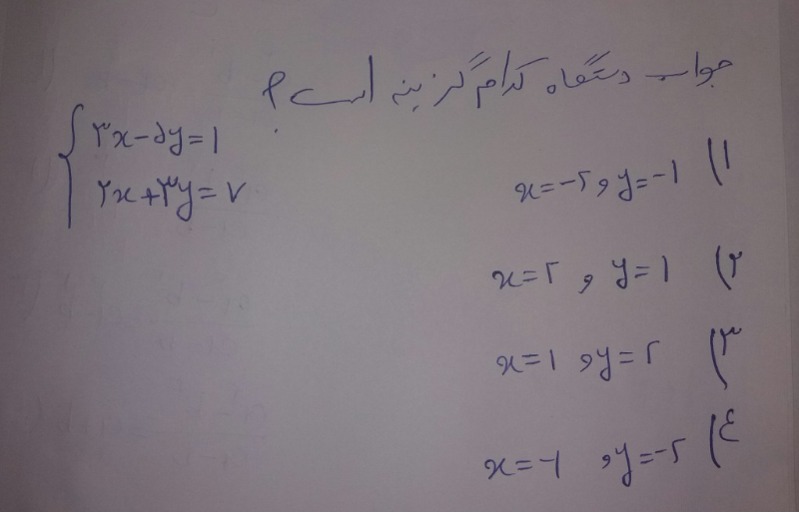 جواب دستگاه کدام گزینه است؟
۳x-۵y=۱
۲x+۳y=۷
۱) x=-۲ و y=-۱
۲) x=۲ و y=۱
۳) x=۱ و y=۲
۴) x=-۱ و y=-۲